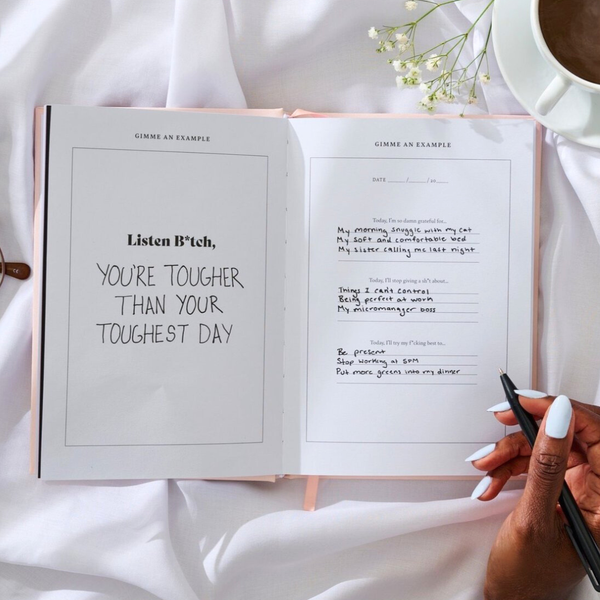 GIMME AN EXAMPLE
Listen B*tch,
YOU'RE TOUGHER
THAN YOUR
TOUGHEST DAY
GIMME AN EXAMPLE
DATE ____/____/ 20__
Today, I'm so damn grateful for...
My morning snuggle with my cat
My soft and comfortable bed
My sister calling me last night
Today, I'll stop giving a sh*t about...
Things I can't control
Being perfect at work
My micromanager boss
Today, I'll try my f*cking best to...
Be present
Stop working at 5PM
Put more greens into my dinner